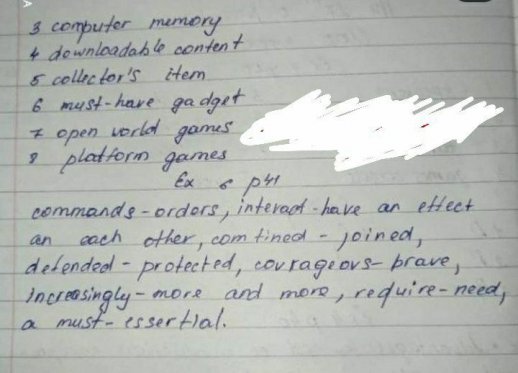 3 computer memory
4 downloadable content
5 collector's item
6 must-have gadget
7 open world games
8 platform games
Ex 6 p41
commands - orders, interact - have an effect
an each other, comtined - joined,
defended - protected, courageovs - brave,
increasingly - more and more, require - need,
a must - essertial.